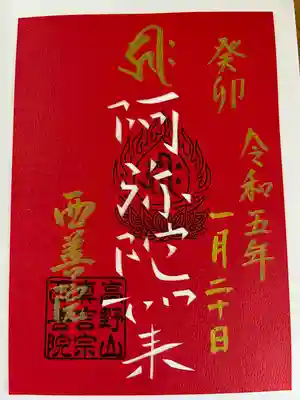 癸卯
令和五年
一月二十日
阿弥陀如来
西善院
高野山
真言宗
西善院